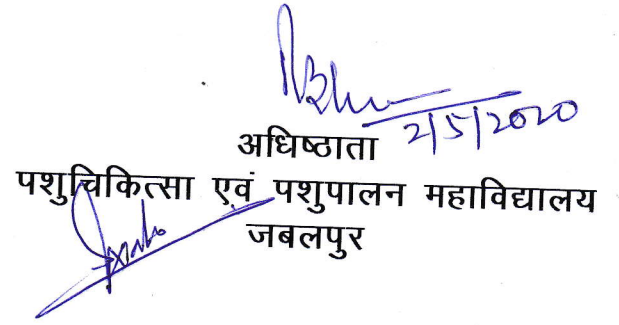 2/5/2020
अधिष्ठाता
पशुचिकित्सा एवं पशुपालन महाविद्यालय
जबलपुर